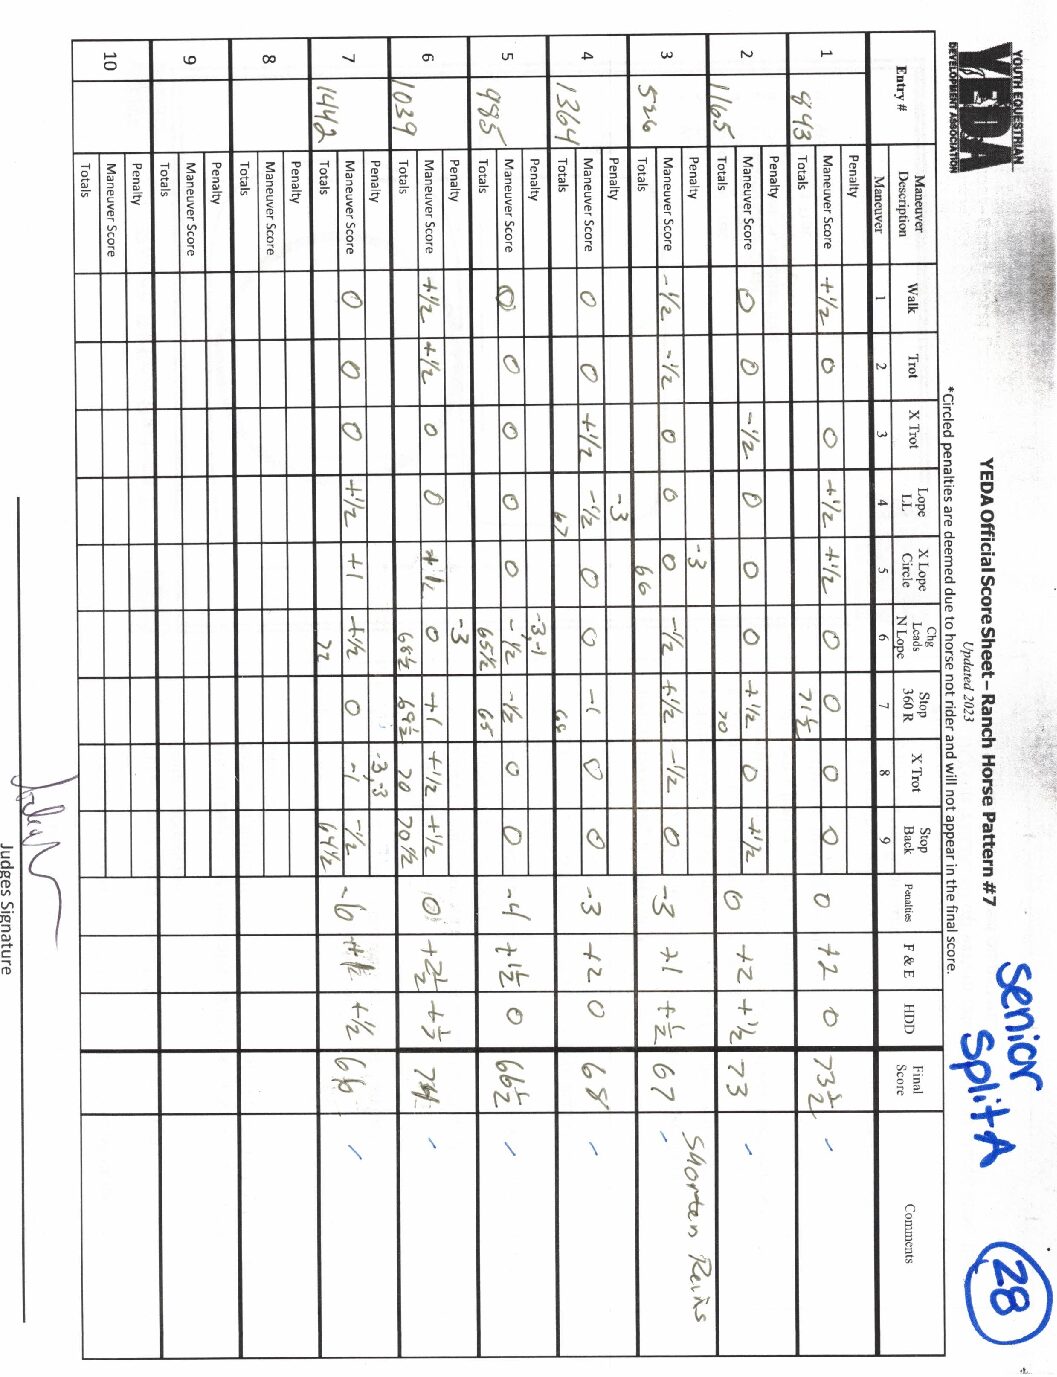 YOUTH EQUESTRIAN
YEDA
DEVELOPMENT ASSOCIATION
YEDA Official Score Sheet – Ranch Horse Pattern #7
Updated 2023
*Circled penalties are deemed due to horse not rider and will not appear in the final score.
Senior
Split A
28
Entry # Maneuver Description Walk Trot X Trot Lope LL X Lope Circle Chg Leads N Lope Stop 360 R X Trot Stop Back Penalties F & E HDD Final Score Comments
Maneuver 1 2 3 4 5 6 7 8 9
1 843
Penalty
Maneuver Score +1/2 0 0 +1/2 +1/2 0 0 0 0 0 +2 0 73 1/2
Totals 71 1/2
2 1165
Penalty
Maneuver Score 0 0 -1/2 0 0 0 +1/2 0 +1/2 0 +2 +1/2 73
Totals 70
3 526
Penalty -3
Maneuver Score -1/2 -1/2 0 0 0 -1/2 +1/2 -1/2 0 -3 +1 +1/2 67 Shorten Reins
Totals 66
4 1364
Penalty -3
Maneuver Score 0 0 +1/2 -1/2 0 0 -1 0 0 -3 +2 0 68
Totals 67
5 985
Penalty -3,-1
Maneuver Score 0 0 0 0 0 -1/2 -1/2 0 0 -4 +1 1/2 0 66 1/2
Totals 65 1/2 65
6 1039
Penalty -3
Maneuver Score +1/2 +1/2 0 0 +1/2 0 +1 +1/2 +1/2 0 +2 1/2
Totals 68 1/2 69 1/2 70 70 1/2
7 1442
Penalty -3,-3
Maneuver Score 0 0 0 +1/2 +1 +1/2 0 -1 -1/2 -6 +1/2 66
Totals 72 64 1/2
8
Penalty
Maneuver Score
Totals
9
Penalty
Maneuver Score
Totals
10
Penalty
Maneuver Score
Totals
Judges Signature